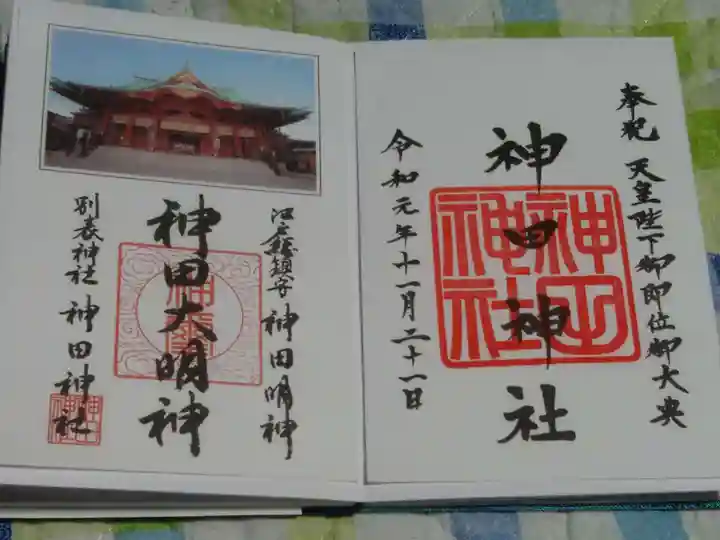 奉祝 天皇陛下御即位御大典
神田神社
神田神社
令和元年十一月二十一日
江戸総鎮守 神田明神
神田大明神
別表神社 神田神社
神田神社